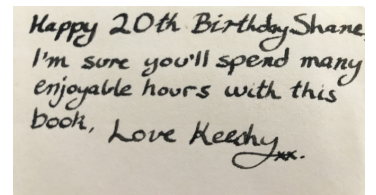 Happy 20th Birthday Shane,
I'm sure you'll spend many
enjoyable hours with this
book, Love Keeshy
xx.